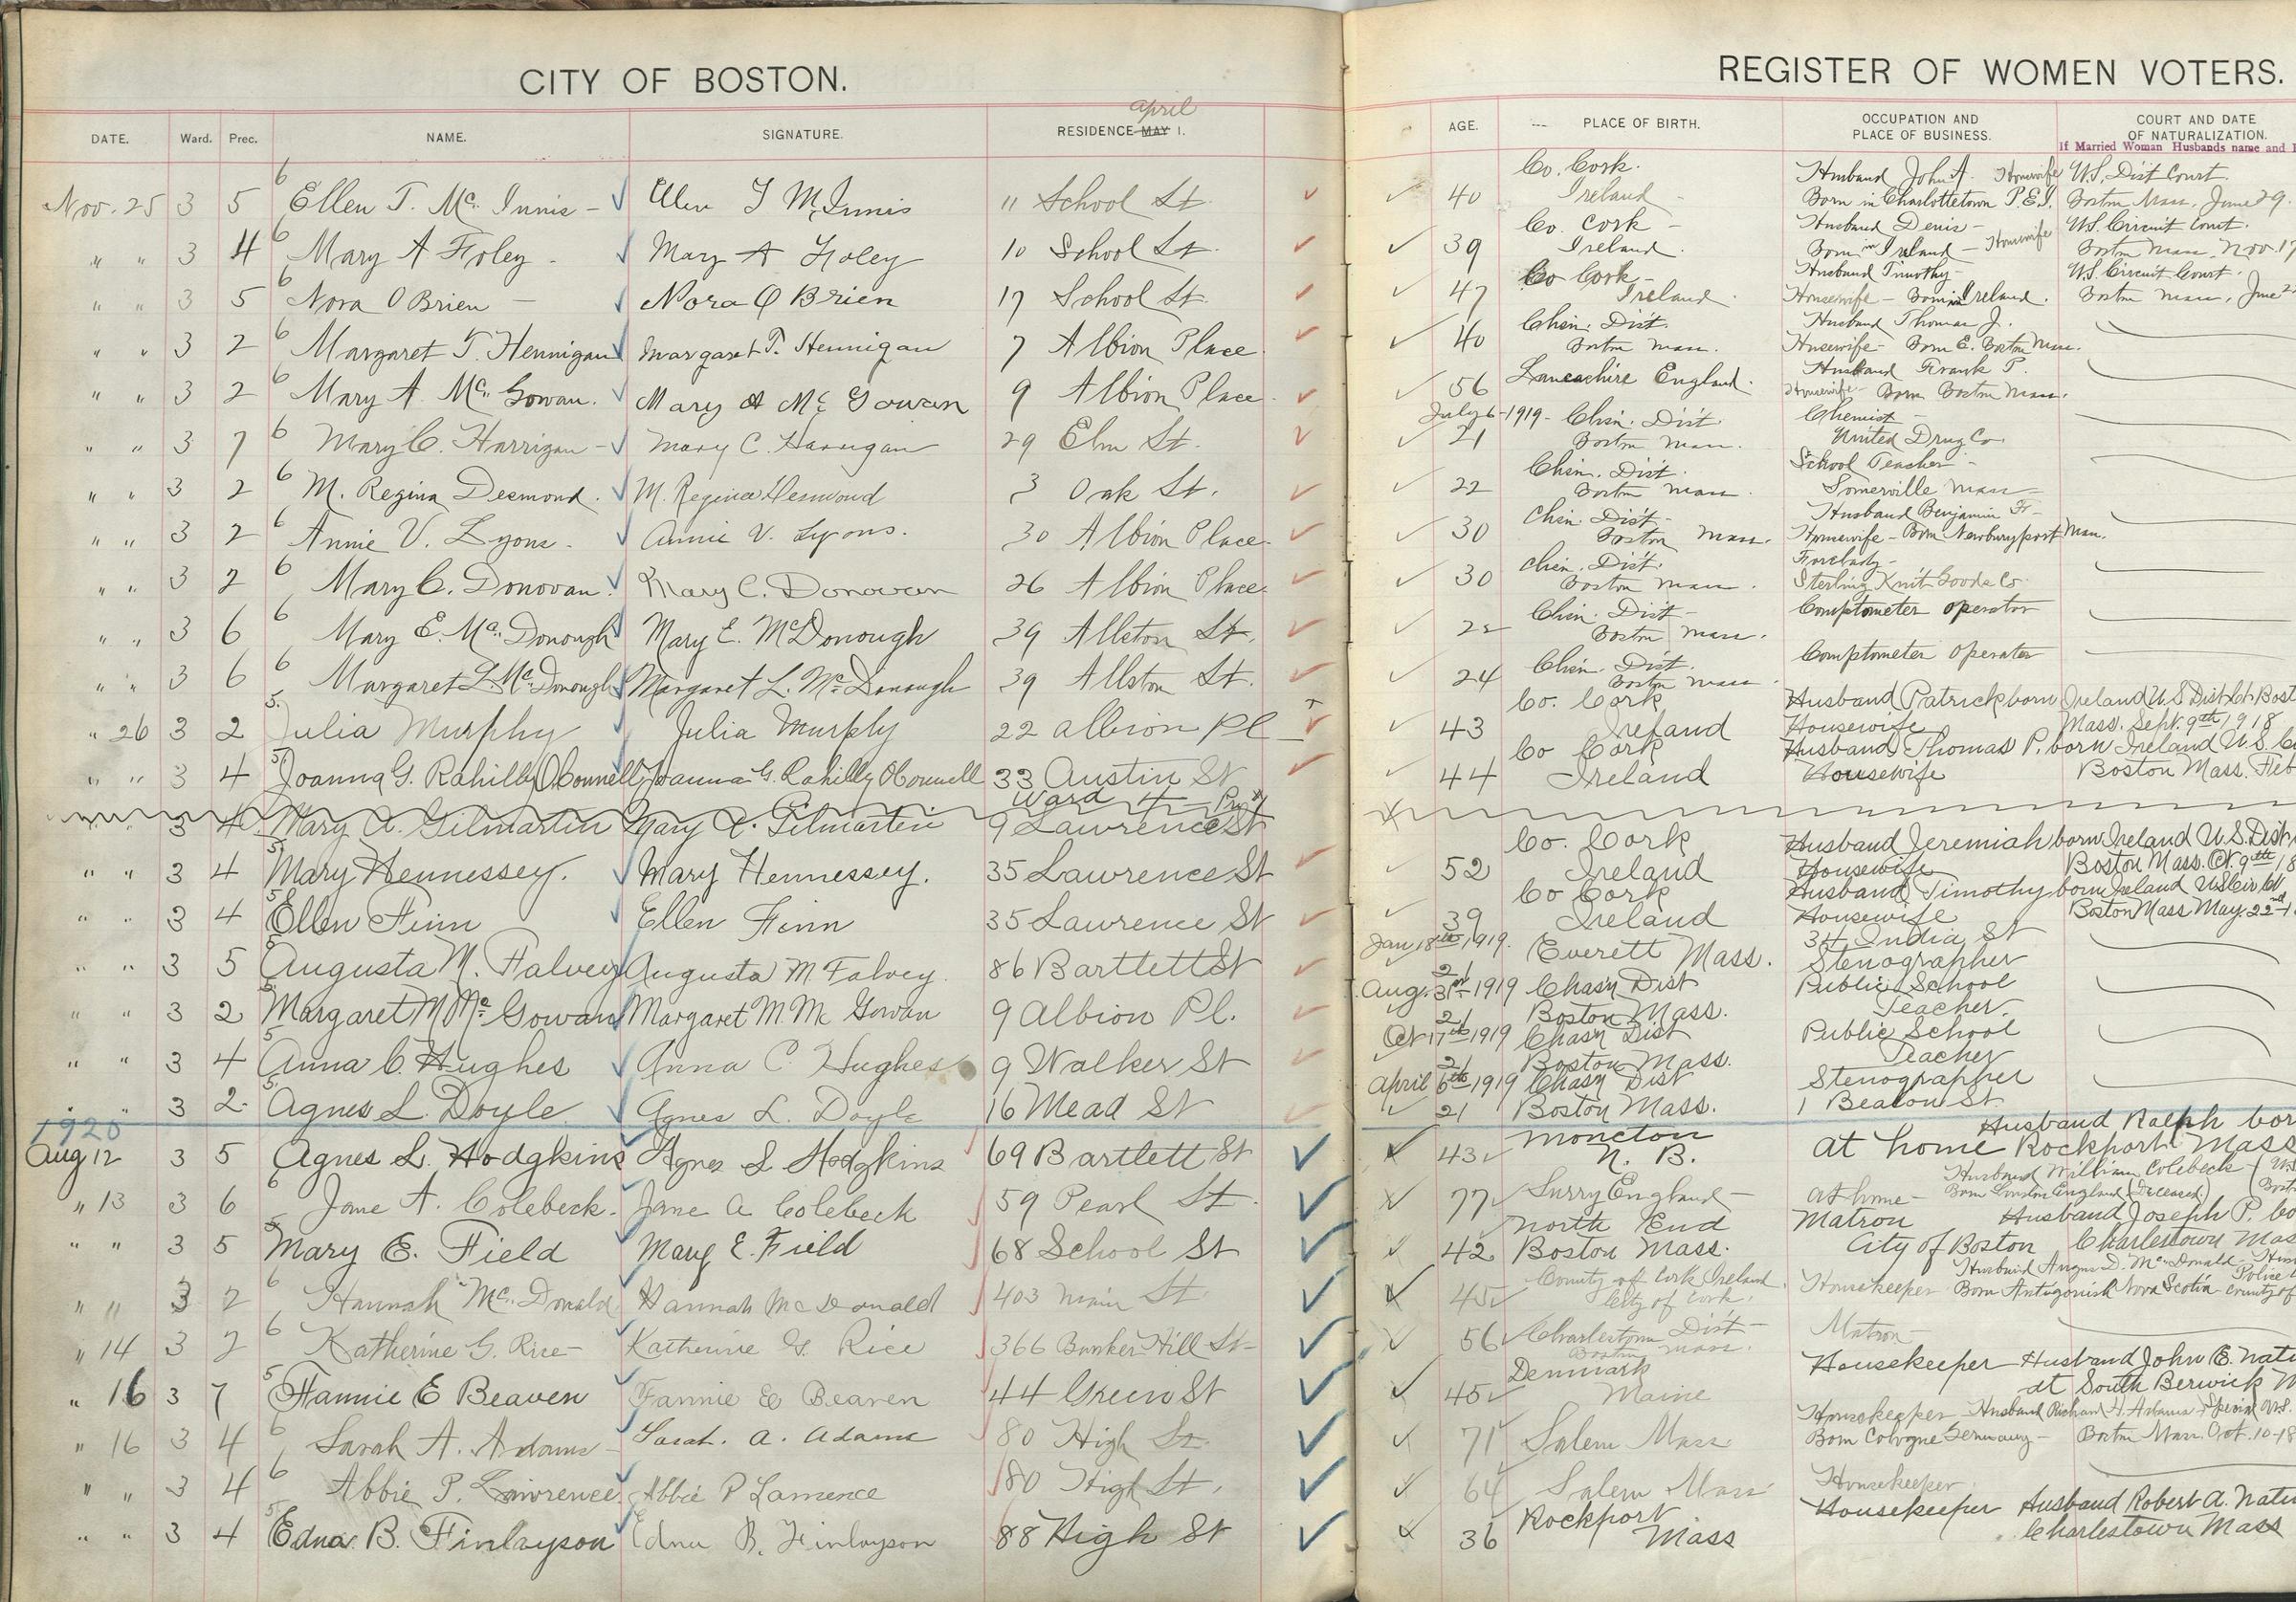 CITY OF BOSTON.
REGISTER OF WOMEN VOTERS.
april
DATE. Ward. Prec. NAME. SIGNATURE. RESIDENCE MAY 1. AGE. PLACE OF BIRTH. OCCUPATION AND PLACE OF BUSINESS. COURT AND DATE OF NATURALIZATION.
If Married Woman Husbands name and
Co. Cork. Husband John A. Housewife U.S. Dist Court.
Nov. 25 3 5 6 Ellen T. Mc Innis - Ellen T McInnis 11 School St 40 Ireland - Born in Charlottetown P.E.I. Boston Mass, June 29.
Co. Cork - Husband Denis - Housewife U.S. Circuit Court.
" " 3 4 6 Mary A Foley - Mary A Foley 10 School St 39 Ireland. Born in Ireland - Boston Mass. Nov. 17
Co Cork - Husband Timothy - U.S. Circuit Court.
" " 3 5 6 Nora O Brien - Nora O Brien 17 School St. 47 Ireland. Housewife - Born in Ireland. Boston Mass, June 2
Chsn. Dist. Husband Thomas J.
" " 3 2 6 Margaret T. Hennigan Margaret T. Hennigan 7 Albion Place. 40 Boston Mass. Housewife - Born E. Boston Mass.
Husband Frank P.
" " 3 2 6 Mary A. Mc Gowan. Mary A Mc Gowan 9 Albion Place. 56 Lancashire England. Housewife - Born Boston Mass.
July 6 - 1919 - Chsn. Dist. Chemist -
" " 3 7 6 Mary C. Harrigan - Mary C. Harrigan 29 Elm St. 21 Boston Mass. United Drug Co.
Chsn. Dist. School Teacher -
" " 3 2 6 M. Regina Desmond. M. Regina Desmond 3 Oak St. 22 Boston Mass. Somerville Mass -
Chsn. Dist - Husband Benjamin F. -
" " 3 2 6 Annie V. Lyons. Annie V. Lyons. 30 Albion Place. 30 Boston Mass. Housewife - Born Newburyport Mass.
Chsn. Dist. Forelady -
" " 3 2 6 Mary C. Donovan. Mary C. Donovan 26 Albion Place. 30 Boston Mass. Sterling Knit Goods Co.
Chsn. Dist - Comptometer operator
" " 3 6 6 Mary E. Mc Donough Mary E. McDonough 39 Allston St. Boston Mass.
Chsn. Dist. Comptometer operator
" " 3 6 6 Margaret L. Mc Donough Margaret L. Mc Donough 39 Allston St. 24 Boston Mass
Co. Cork Husband Patrick born Ireland U.S Dist Ct. Bost
" 26 3 2 5. Julia Murphy Julia Murphy 22 Albion Pl 43 Ireland Housewife Mass. Sept. 9th 1918
Co Cork Husband Thomas P. born Ireland U.S.
" " 3 4 5 Joanna G. Rahilly O'Connell Joanna G. Rahilly O'Connell 33 Austin St 44 Ireland Housewife Boston Mass. Feb
Ward 4 Pr
" " 3 4 Mary A. Gilmartin Mary A. Gilmartin 9 Lawrence St
Co. Cork Husband Jeremiah born Ireland U.S. Dist
" " 3 4 5 Mary Hennessey. Mary Hennessey. 35 Lawrence St 52 Ireland Housewife Boston Mass. Oct. 9th 18
Co Cork Husband Timothy born Ireland U.S. Cir Ct
" " 3 4 5 Ellen Finn Ellen Finn 35 Lawrence St 39 Ireland Housewife Boston Mass May 22nd
Jan 18th 1919. 34 India St
" " 3 5 5 Augusta M. Falvey Augusta M Falvey. 86 Bartlett St 21 Everett Mass. Stenographer
Aug. 31st 1919 Chasn Dist Public School
" " 3 2 5 Margaret M Mc Gowan Margaret M. Mc Gowan 9 Albion Pl. 21 Boston Mass. Teacher.
Oct 17th 1919 Chasn Dist Public School
" " 3 4 5 Anna C. Hughes Anna C Hughes 9 Walker St 21 Boston Mass. Teacher
April 6th 1919 Chasn Dist Stenographer
" " 3 2 5 Agnes L. Doyle Agnes L. Doyle 16 Mead St 21 Boston Mass. 1 Beacon St
1920
Moncton Husband Ralph bor
Aug 12 3 5 Agnes L. Hodgkins Agnes L Hodgkins 69 Bartlett St 43 N. B. at home Rockport Mass
Husband William Colebeck - (U.S.
" 13 3 6 6 Jane A. Colebeck. Jane A Colebeck 59 Pearl St. 77 Surry England - at home - Born London England (Deceased) Bost
North End Matron Husband Joseph P. bo
" " 3 5 5 Mary E. Field Mary E. Field 68 School St 42 Boston Mass. City of Boston Charlestown Mas
County of Cork Ireland. Husband Angus D. Mc Donald
" " 3 2 6 Hannah Mc Donald Hannah McDonald 403 Main St. 45 City of Cork. Housekeeper Born Antigonish Nova Scotia County of
Charlestown Dist - Matron
" 14 3 2 6 Katherine G. Rice - Katherine G. Rice 366 Bunker Hill St - 56 Boston Mass.
Denmark Housekeeper Husband John E. natu
" 16 3 7 5 Fannie E Beaven Fannie E Beaven 44 Green St 45 Maine at South Berwick M
Housekeeper Husband Richard H. Adams U.S.
" 16 3 4 6 Sarah A. Adams - Sarah. A. Adams 80 High St. 71 Salem Mass. Born Cologne Germany - Boston Mass. Oct. 10-18
" " 3 4 6 Abbie P. Lawrence. Abbie P Lawrence 80 High St. 64 Salem Mass Housekeeper.
Rockport Housekeeper Husband Robert A. natu
" " 3 4 5 Edna B. Finlayson Edna B. Finlayson 88 High St 36 Mass Charlestown Mass